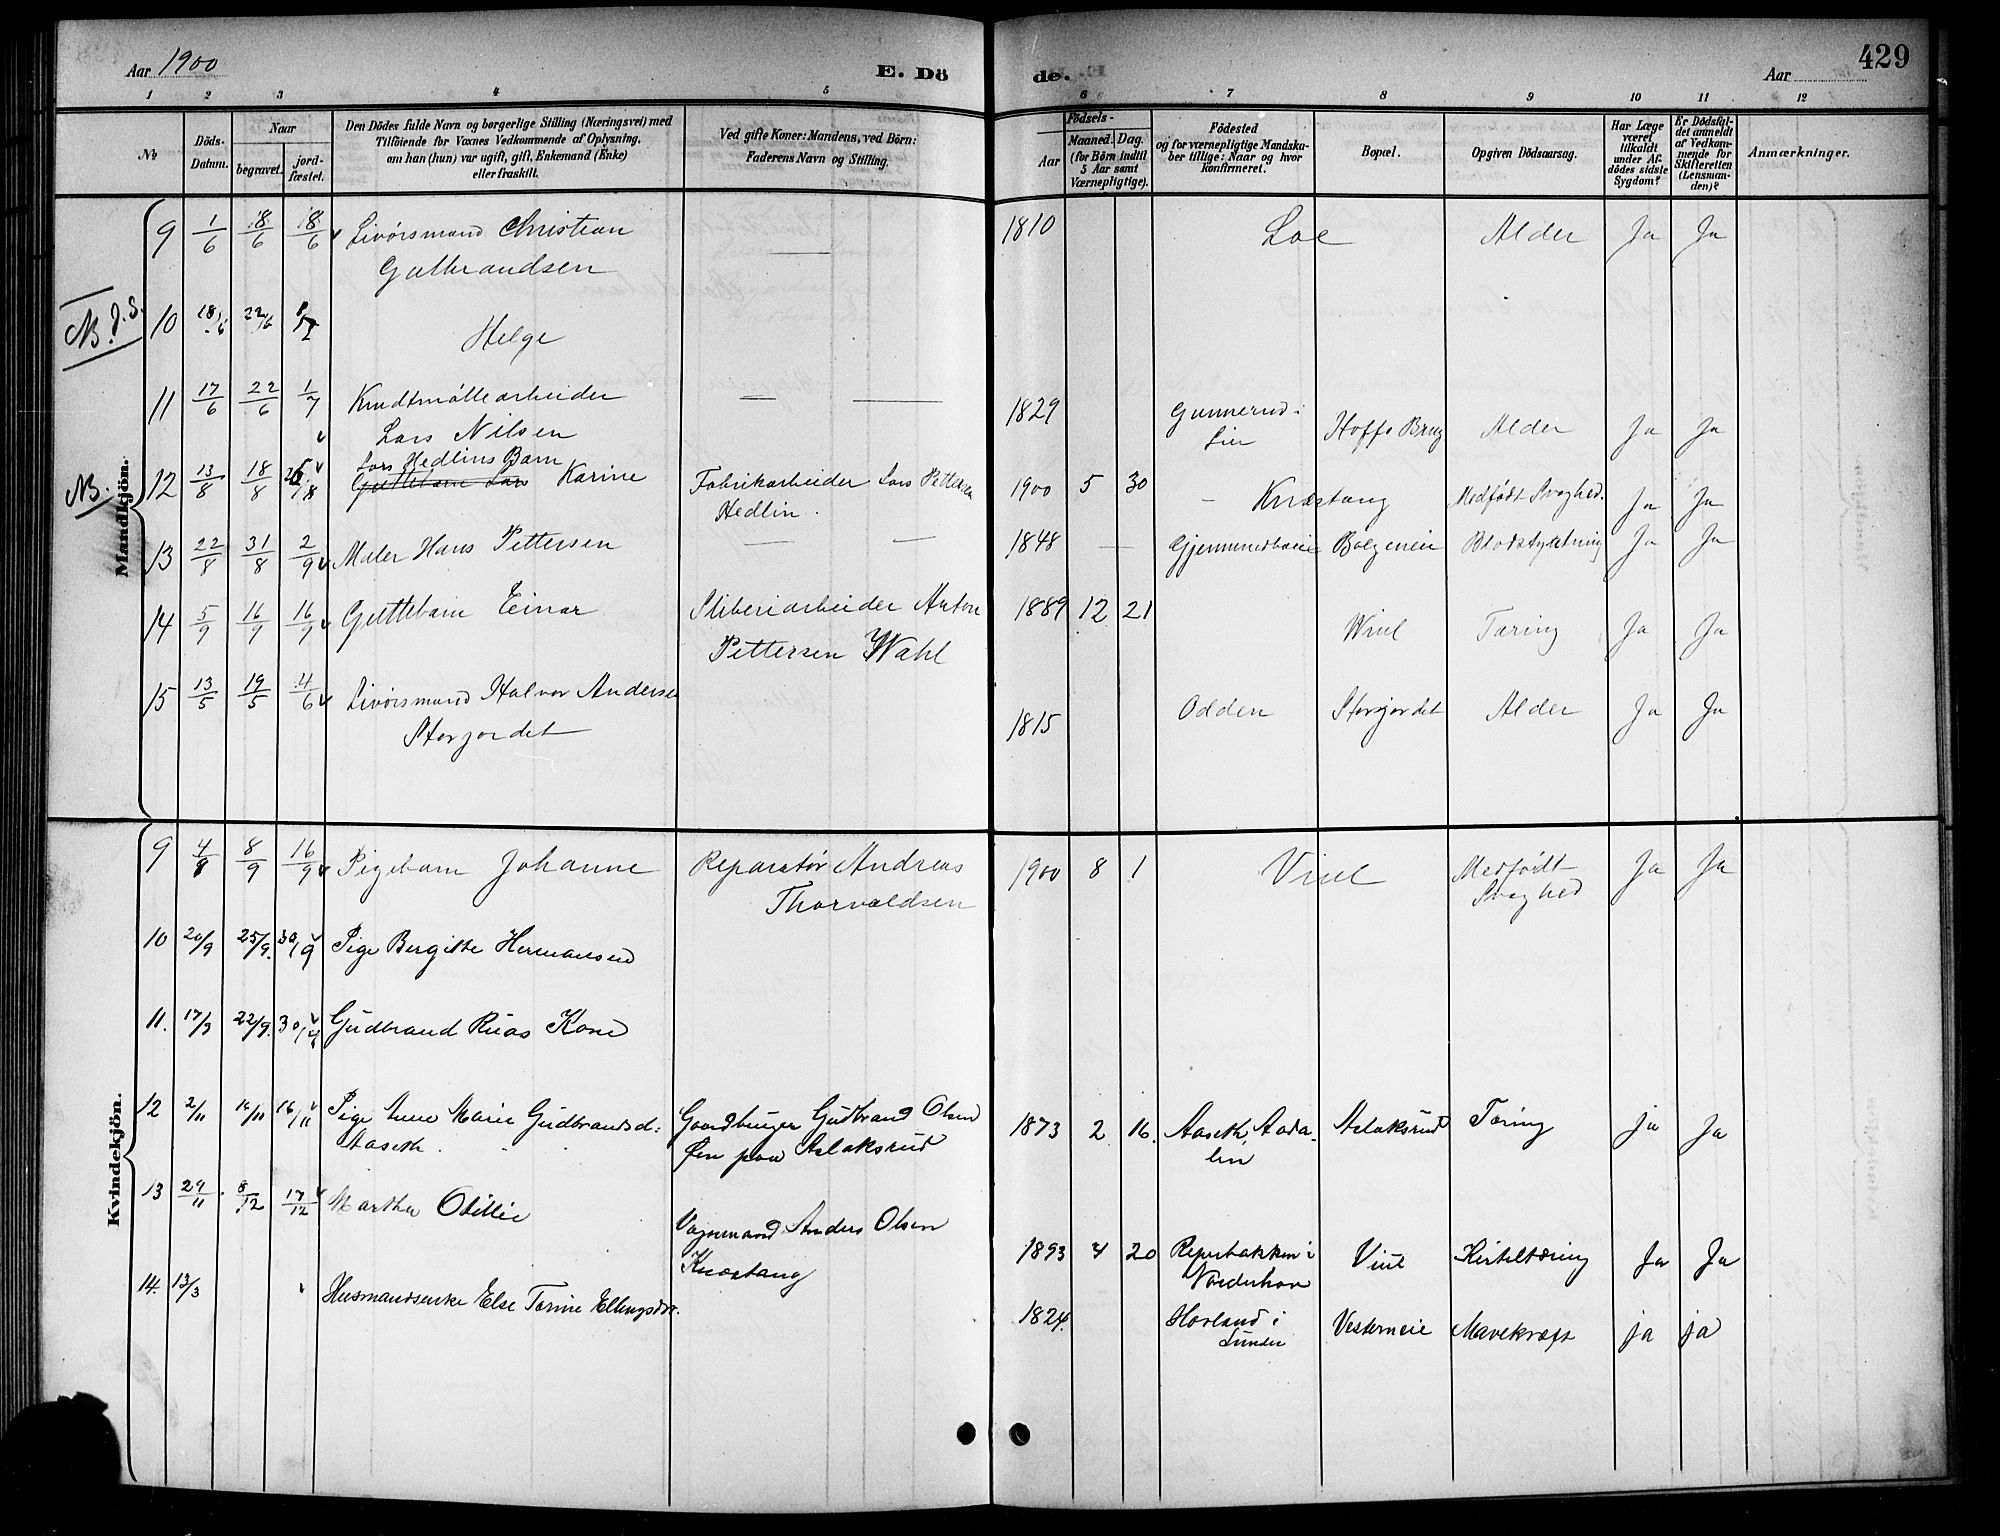 Aar 1900
E. Dö
de.
Aar
429
1 2 3 4 5 6 7 8 9 10 11 12
No
Döds-Datum.
Naar
begravet. jord-fæstet.
Den Dödes fulde Navn og borgerlige Stilling (Næringsvei) med
Tilföiende for Voxnes Vedkommende af Oplysning,
om han (hun) var ugift, gift, Enkemand (Enke)
eller fraskilt.
Ved gifte Koner: Mandens, ved Börn:
Faderens Navn og Stilling.
Födsels-
Aar
Maaned. Dag.
(for Börn indtil
5 Aar samt
Værnepligtige).
Födested
og for værnepligtige Mandska-
ber tillige: Naar og hvor
konfirmeret.
Bopæl.
Opgiven Dödsaarsag.
Har Læge
været
tilkaldt
under Af-
dödes sidste
Sygdom?
Er Dödsfal-
det anmeldt
af Vedkom-
mende for
Skifteretten
(Lensman-
den)?
Anmærkninger.
Mandkjön.
9 1/6 18/6 18/6 Livörsmand Christian — 1810 Loe Alder Ja Ja
Gulbrandsen
NB.
10 18/6 22/6 1/7
Helge
11 17/6 22/6 1/7 Krudtmöllearbeider — — 1829 Gunnerud i Lier Hoffs Brug Alder Ja Ja
Lars Nilsen
Lars Hedlins Barn
NB. 12 13/8 18/8 26/8 Guttebarn Lars Karine Fabrikarbeider Lars Pettersen 1900 5 30 – Knestang Medfödt Svaghed. Ja Ja
Hedlin.
13 22/8 31/8 2/9 Maler Hans Pettersen — — 1848 — Bolgeneie Blodstyrtning Ja Ja
14 5/9 16/9 16/9 Guttebarn Einar Sliberiarbeider Anton 1889 12 21 Wiul Tæring Ja Ja
Pettersen Wahl
15 13/5 19/5 4/6 Livörsmand Halvor Andersen 1815 Odden Storjordet Alder Ja Ja
Storjordet
Kvindekjön.
9 4/9 8/9 16/9 Pigebarn Johanne Reparatör Andreas 1900 8 1 Viul Medfödt Ja Ja
Thorvaldsen Svaghed
10 20/9 25/9. 30/9 Pige Bergitte Hermansen
11. 17/9 22/9. 30/9 Gudbrand Ruas Kone
12 2/11 16/11 16/11 Pige Anne Marie Gudbrandsd: Gaardbruger Gudbrand Olsen 1873 2 16. Aaseth, Aada- Aslaksrud Tæring ja Ja
Aaseth. Öen paa Aslaksrud len
13 29/11 8/12 17/12 Marthea Otillie Vognmand Anders Olsen 1893 4 20 Reperbakken i Viul Kirteltæring Ja Ja
Knestang Norderhov
14. 13/3 Husmandsenke Else Torine Ellingsdtr. 1824. Horland i Vesterneie Mavekræft ja ja